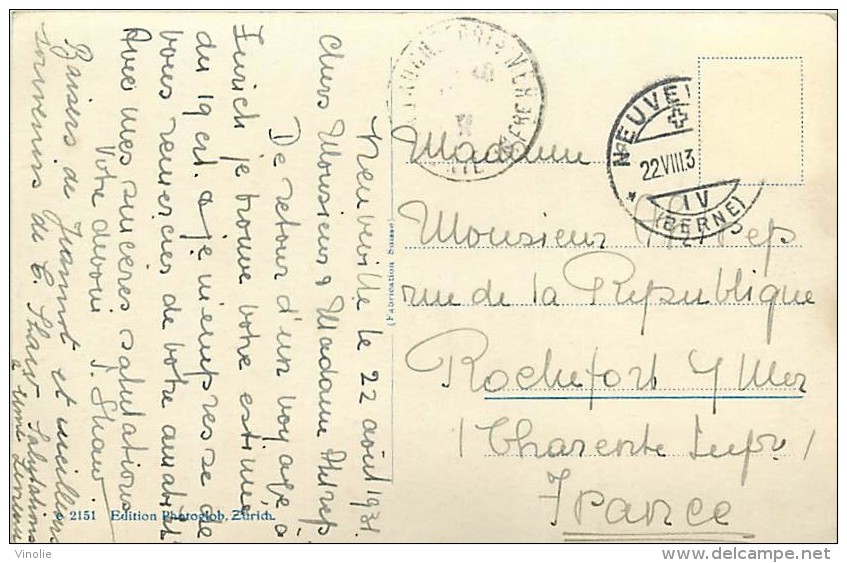 Neuveville le 22 août 1931.
Chers Monsieur & Madame
De retour d'un voyage à
Zürich je trouve votre estimée
du 19 crt. & je m'empresse de
vous remercier de votre amabilité
Avec mes sincères salutations
Votre dévoué J. Shaw
Baisers de Jeannot et meilleurs
souvenirs de C. Shaw Salutations
à
Madame
Monsieur
rue de la République
Rochefort s/ Mer
(Charente Infre)
France
22 VIII 3
IV
(BERNE)
(Fabrication Suisse)
2151 Edition Photoglob, Zürich.
Vinolie
delcampe.net